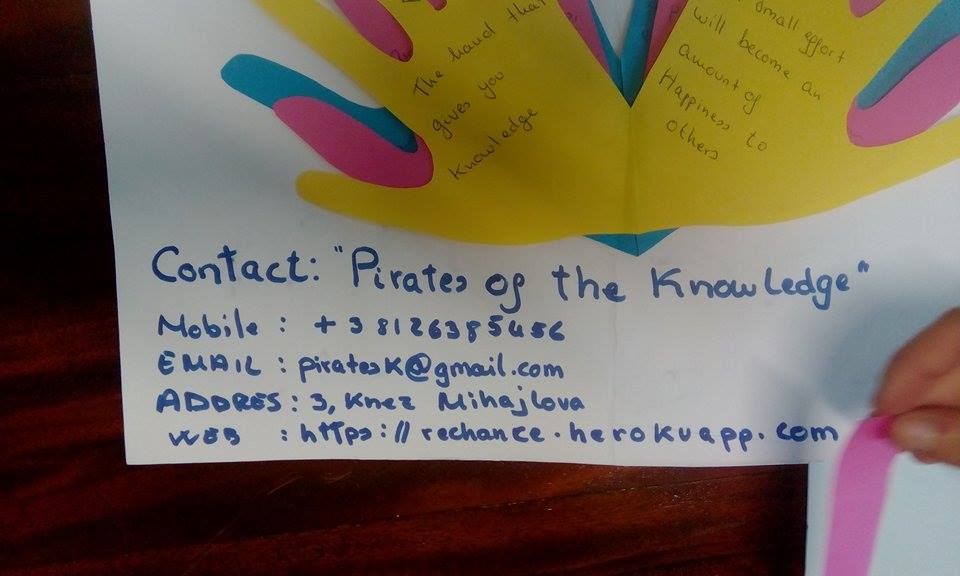 The hand that
gives you
Knowledge
small effort
will become an
amount of
Happiness to
others
Contact: "Pirates of the Knowledge"
Mobile : +38126385456
EMAIL : piratesK@gmail.com
ADDRES: 3, Knez Mihajlova
WEB : https://rechance.herokuapp.com